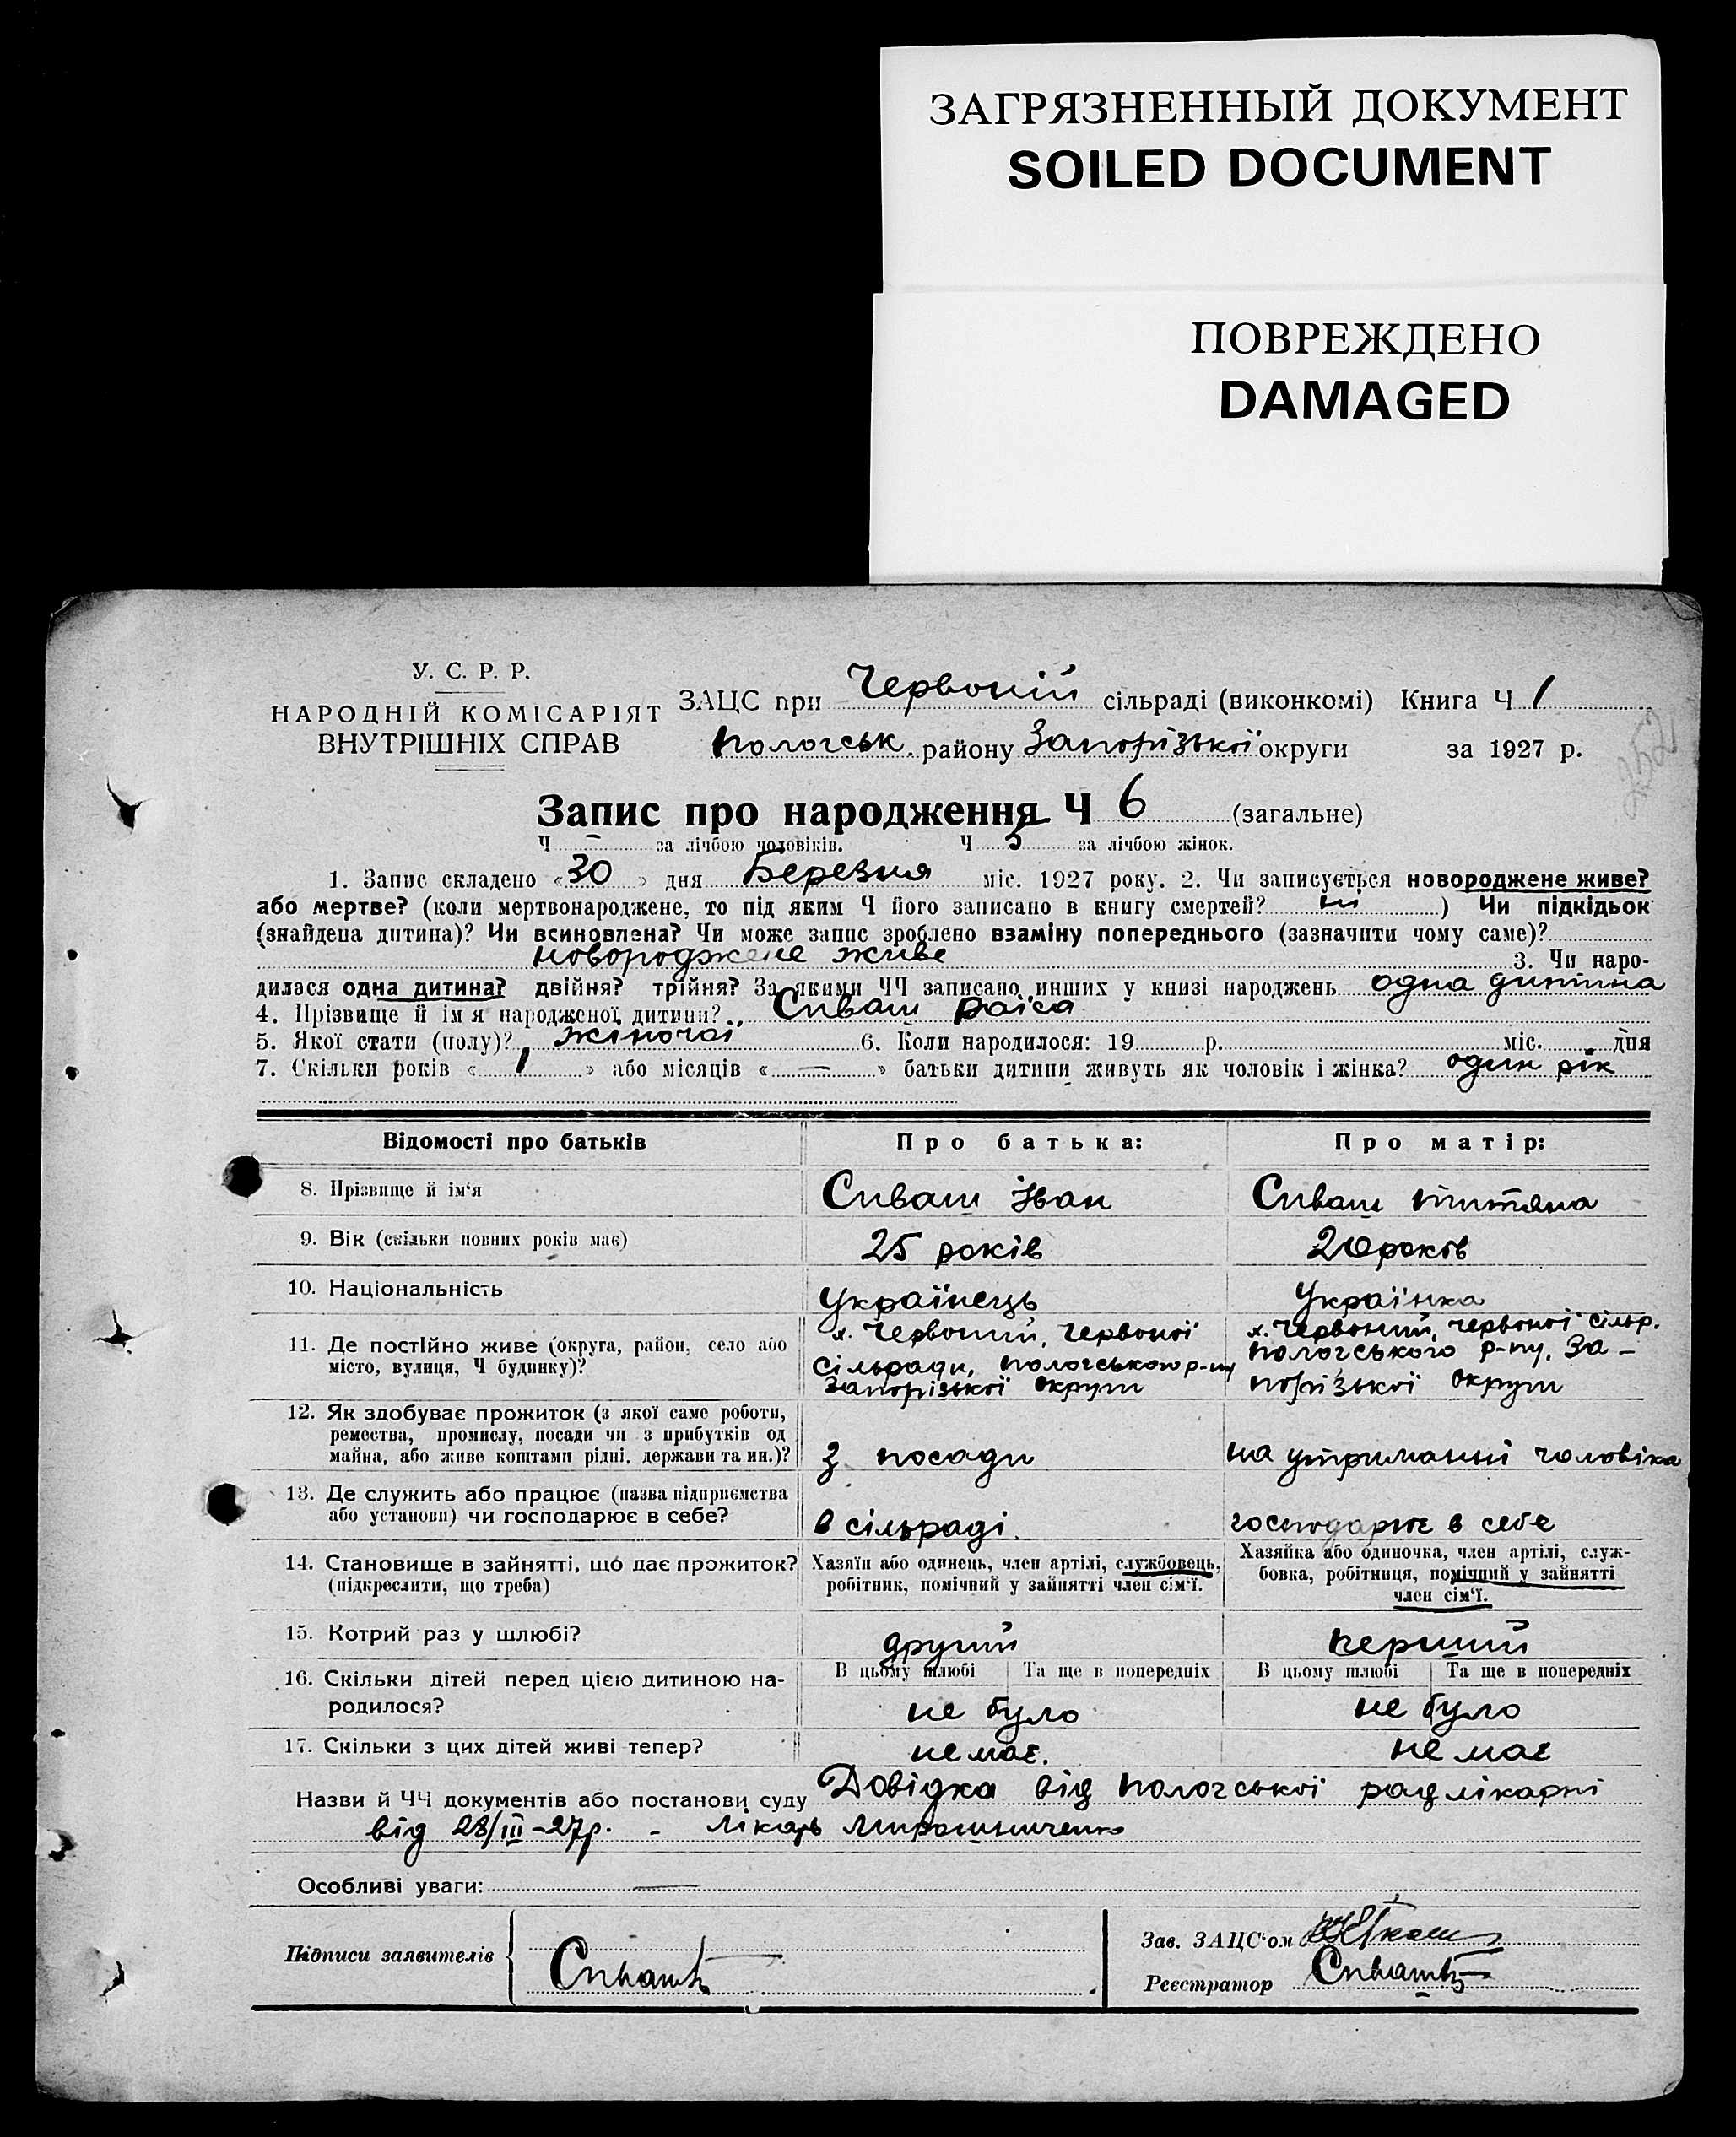 ЗАГРЯЗНЕННЫЙ ДОКУМЕНТ
SOILED DOCUMENT
ПОВРЕЖДЕНО
DAMAGED
У. С. Р. Р.
НАРОДНІЙ КОМІСАРІЯТ
ВНУТРІШНІХ СПРАВ
ЗАЦС при Червоній сільраді (виконкомі) Книга Ч 1
Пологськ. району Запорізької округи за 1927 р.
252
Запис про народження Ч 6 (загальне)
Ч — за лічбою чоловіків. Ч 5 за лічбою жінок.
1. Запис складено «30» дня Березня міс. 1927 року. 2. Чи записується новороджене живе?
або мертве? (коли мертвонароджене, то під яким Ч його записано в книгу смертей? ні) Чи підкідьок
(знайдена дитина)? Чи всиновлена? Чи може запис зроблено взаміну попереднього (зазначити чому саме)?
новороджене живе 3. Чи наро-
дилася одна дитина? двійня? трійня? За якими ЧЧ записано инших у книзі народжень одна дитина
4. Прізвище й ім'я народженої дитини? Сиваш Раїса
5. Якої стати (полу)? жіночої 6. Коли народилося: 19 р. міс. дня
7. Скільки років «1» або місяців «—» батьки дитини живуть як чоловік і жінка? один рік
Відомості про батьків Про батька: Про матір:
8. Прізвище й ім'я Сиваш Іван Сиваш Титяна
9. Вік (скільки повних років має) 25 років 20 років
10. Національність Українець Українка
11. Де постійно живе (округа, район, село або
місто, вулиця, Ч будинку)?
х. Червоний, Червоної
сільради, Пологського р-ну
Запорізької округи
х. Червоний, Червоної сільр.
Пологського р-ну, За-
порізької округи
12. Як здобуває прожиток (з якої саме роботи,
ремества, промислу, посади чи з прибутків од
майна, або живе коштами рідні, держави та ин.)?
З посади на утриманні чоловіка
13. Де служить або працює (назва підприємства
або установи) чи господарює в себе?
в сільраді. господарює в себе
14. Становище в зайнятті, що дає прожиток?
(підкреслити, що треба)
Хазяїн або одинець, член артілі, службовець,
робітник, помічний у зайнятті член сім'ї.
Хазяйка або одиночка, член артілі, служ-
бовка, робітниця, помічний у зайнятті
член сім'ї.
15. Котрий раз у шлюбі? другий перший
16. Скільки дітей перед цією дитиною на-
родилося?
В цьому шлюбі Та ще в попередніх В цьому шлюбі Та ще в попередніх
не було не було
17. Скільки з цих дітей живі тепер? немає. немає
Назви й ЧЧ документів або постанови суду Довідка від Пологської радлікарні
від 28/III-27р. - Лікарь Мирошниченко
Особливі уваги: —
Підписи заявителів Сиваш
Зав. ЗАЦС'ом
Реєстратор Сиваш